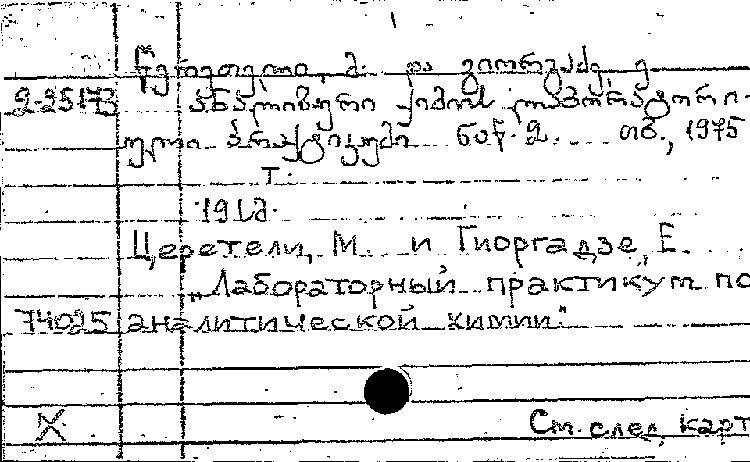 წერეთელი, მ. და გიორგაძე, ე.
2-25173 ანალიზური ქიმიის ლაბორატორი-
ული პრაქტიკუმი ნაწ. 2. თბ., 1975
т.
191გ.
Церетели, М. и Гиоргадзе, Е.
„Лабораторный практикум по
74025 аналитической химии."
X См. след. карт